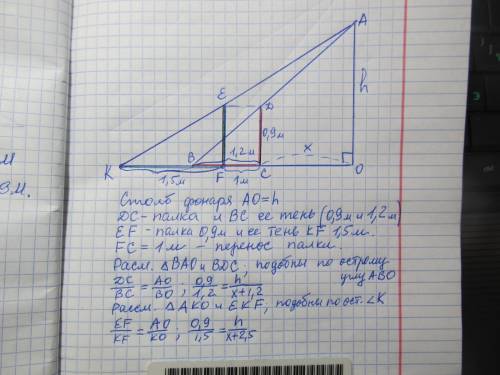 A
E
D
h
0,9м
1,2м
x
K
B
F
C
O
1,5м
1м
м
9м.
Столб фонаря AO=h
DC-палка и BC ее тень (0,9м и 1,2м)
EF-палка 0,9м и ее тень KF 1,5м.
FC=1м - перенос палки.
Расм. △BAO и BDC, подобны по острому
углу ABO
DC/BC = AO/BO; 0,9/1,2 = h/x+1,2
Расм. △AKO и EKF, подобны по ост. ∠K
EF/KF = AO/KO; 0,9/1,5 = h/x+2,5